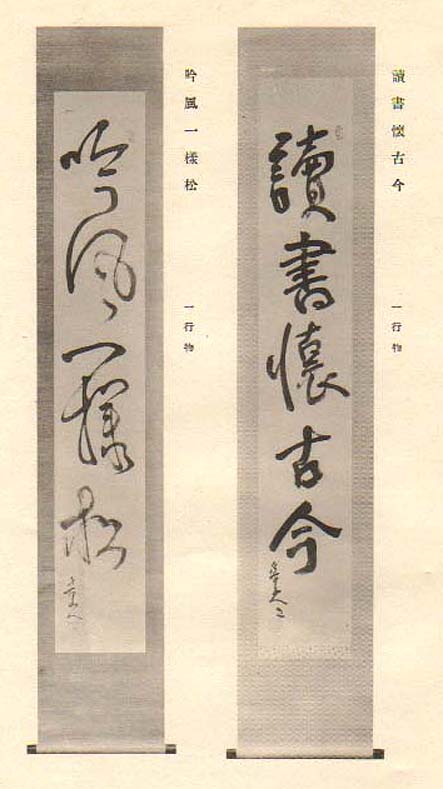 讀書懷古今
一行物
讀書懷古今
吟風一樣松
一行物
吟風一樣松